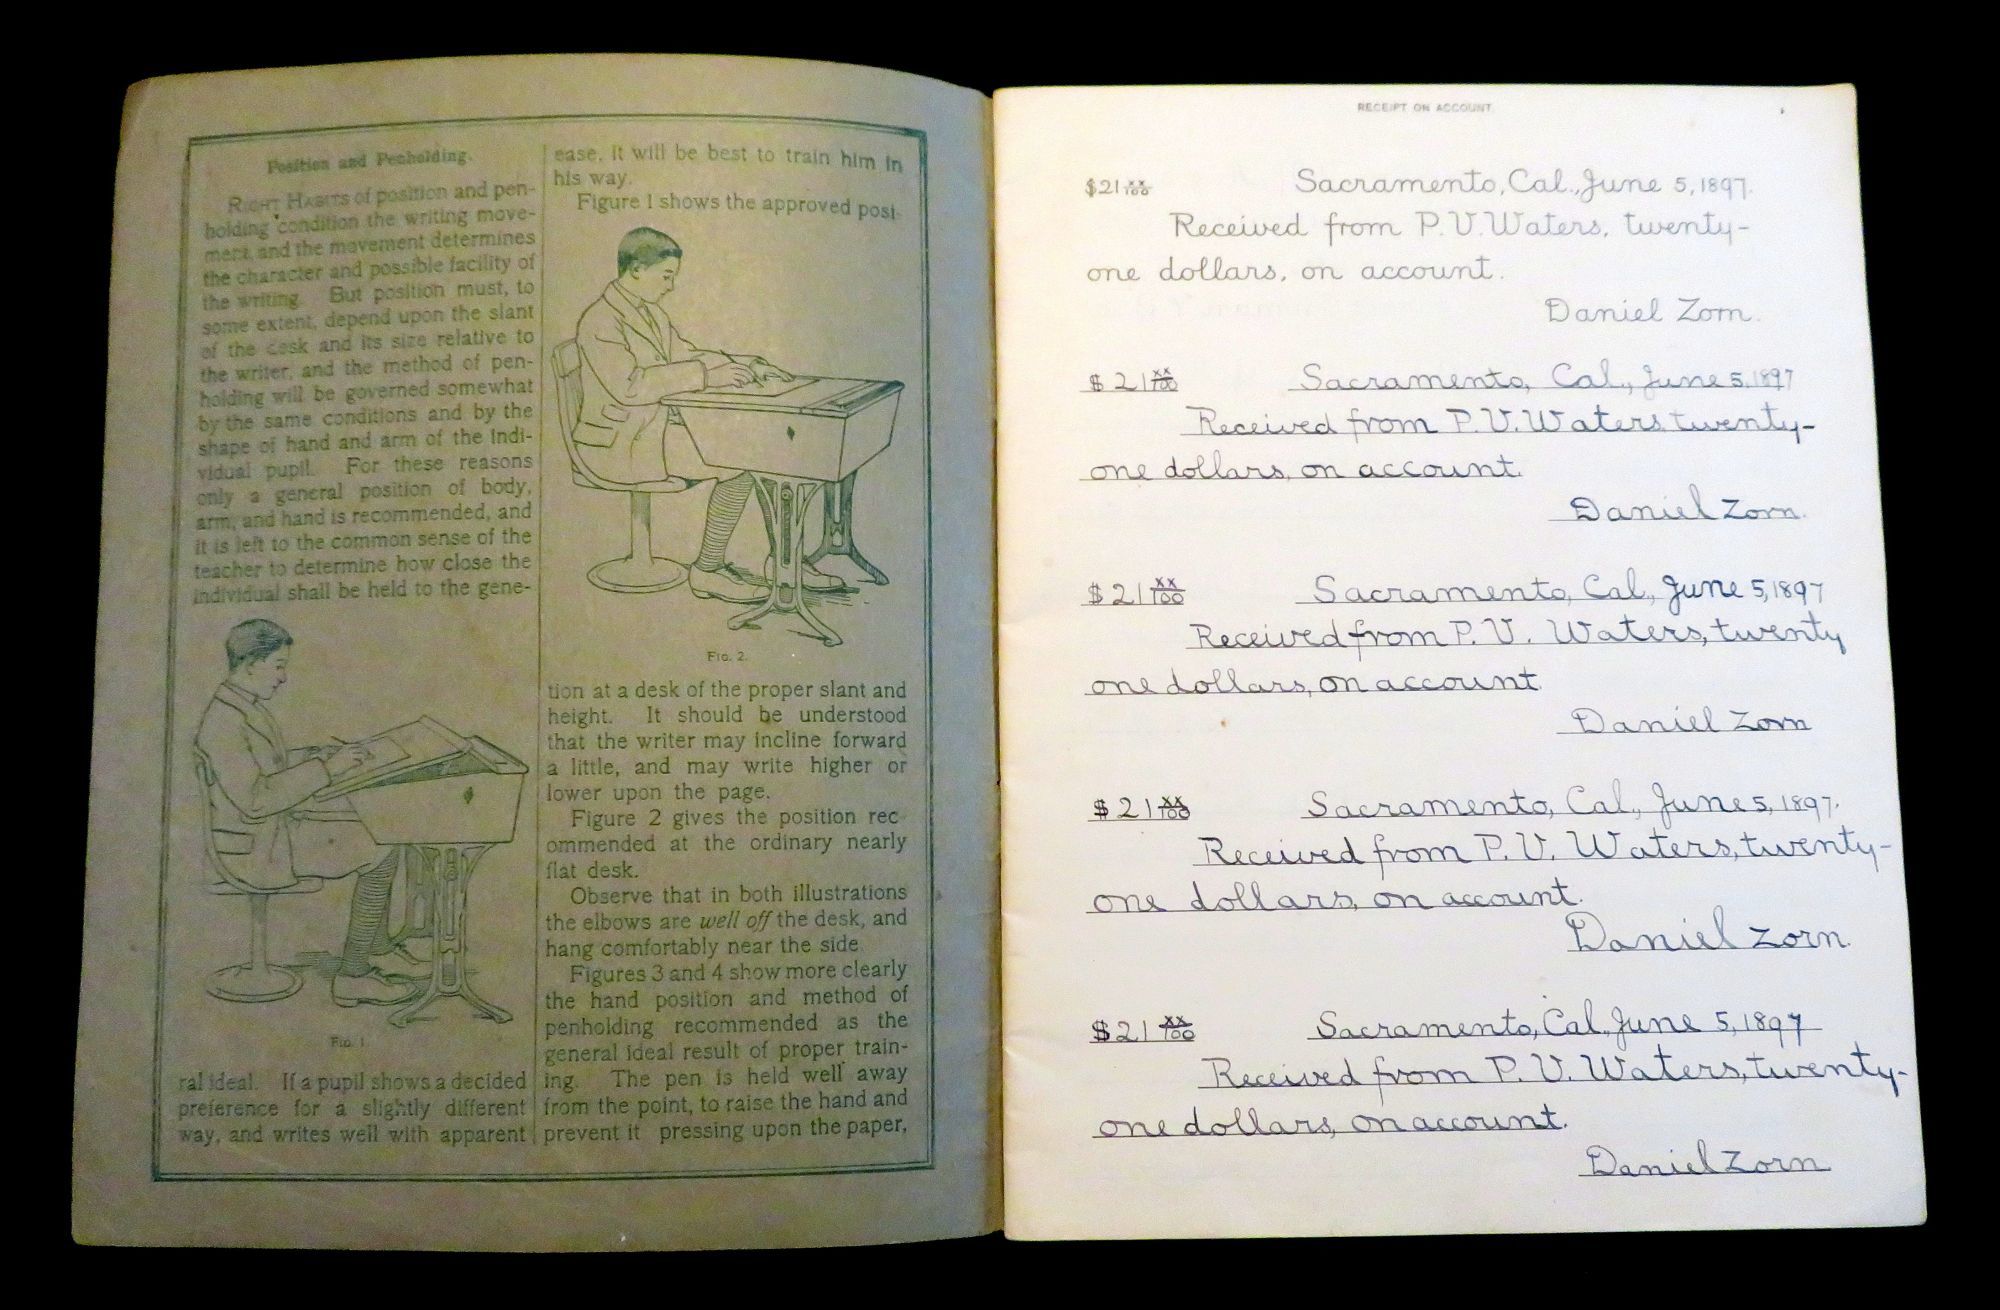 Position and Penholding.
RIGHT HABITS of position and pen-
holding condition the writing move-
ment, and the movement determines
the character and possible facility of
the writing. But position must, to
some extent, depend upon the slant
of the desk and its size relative to
the writer, and the method of pen-
holding will be governed somewhat
by the same conditions and by the
shape of hand and arm of the indi-
vidual pupil. For these reasons
only a general position of body,
arm, and hand is recommended, and
it is left to the common sense of the
teacher to determine how close the
individual shall be held to the gene-
FIG. 1.
ral ideal. If a pupil shows a decided
preference for a slightly different
way, and writes well with apparent
ease, it will be best to train him in
his way.
Figure 1 shows the approved posi-
FIG. 2.
tion at a desk of the proper slant and
height. It should be understood
that the writer may incline forward
a little, and may write higher or
lower upon the page.
Figure 2 gives the position rec-
ommended at the ordinary nearly
flat desk.
Observe that in both illustrations
the elbows are well off the desk, and
hang comfortably near the side.
Figures 3 and 4 show more clearly
the hand position and method of
penholding recommended as the
general ideal result of proper train-
ing. The pen is held well away
from the point, to raise the hand and
prevent it pressing upon the paper,
RECEIPT ON ACCOUNT.
$21 xx/100 Sacramento, Cal., June 5, 1897.
Received from P. V. Waters, twenty-
one dollars, on account.
Daniel Zorn.
$21 xx/100 Sacramento, Cal., June 5, 1897
Received from P. V. Waters twenty-
one dollars, on account.
Daniel Zorn.
$21 xx/100 Sacramento, Cal., June 5, 1897
Received from P. V. Waters, twenty
one dollars, on account
Daniel Zorn
$21 xx/100 Sacramento, Cal., June 5, 1897.
Received from P. V. Waters, twenty-
one dollars, on account.
Daniel Zorn.
$21 xx/100 Sacramento, Cal., June 5, 1897
Received from P. V. Waters, twenty-
one dollars, on account.
Daniel Zorn